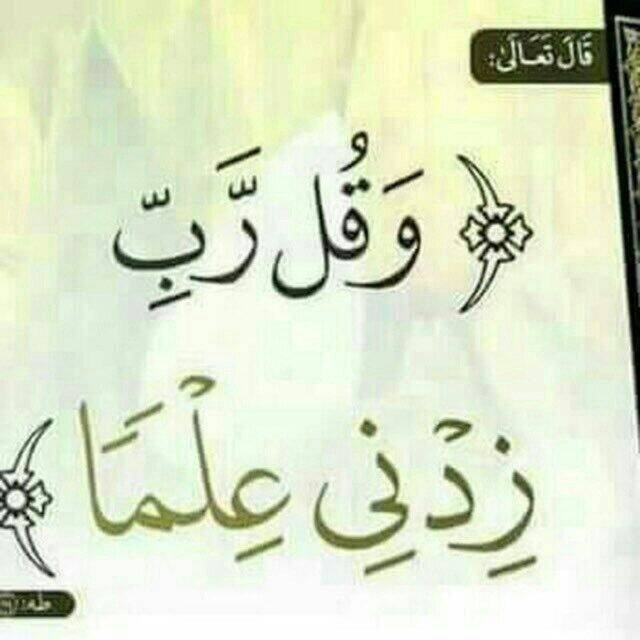 قَالَ تَعَالَىٰ:
﴿ وَقُل رَّبِّ
زِدْنِي عِلْمَا ﴾
طه: